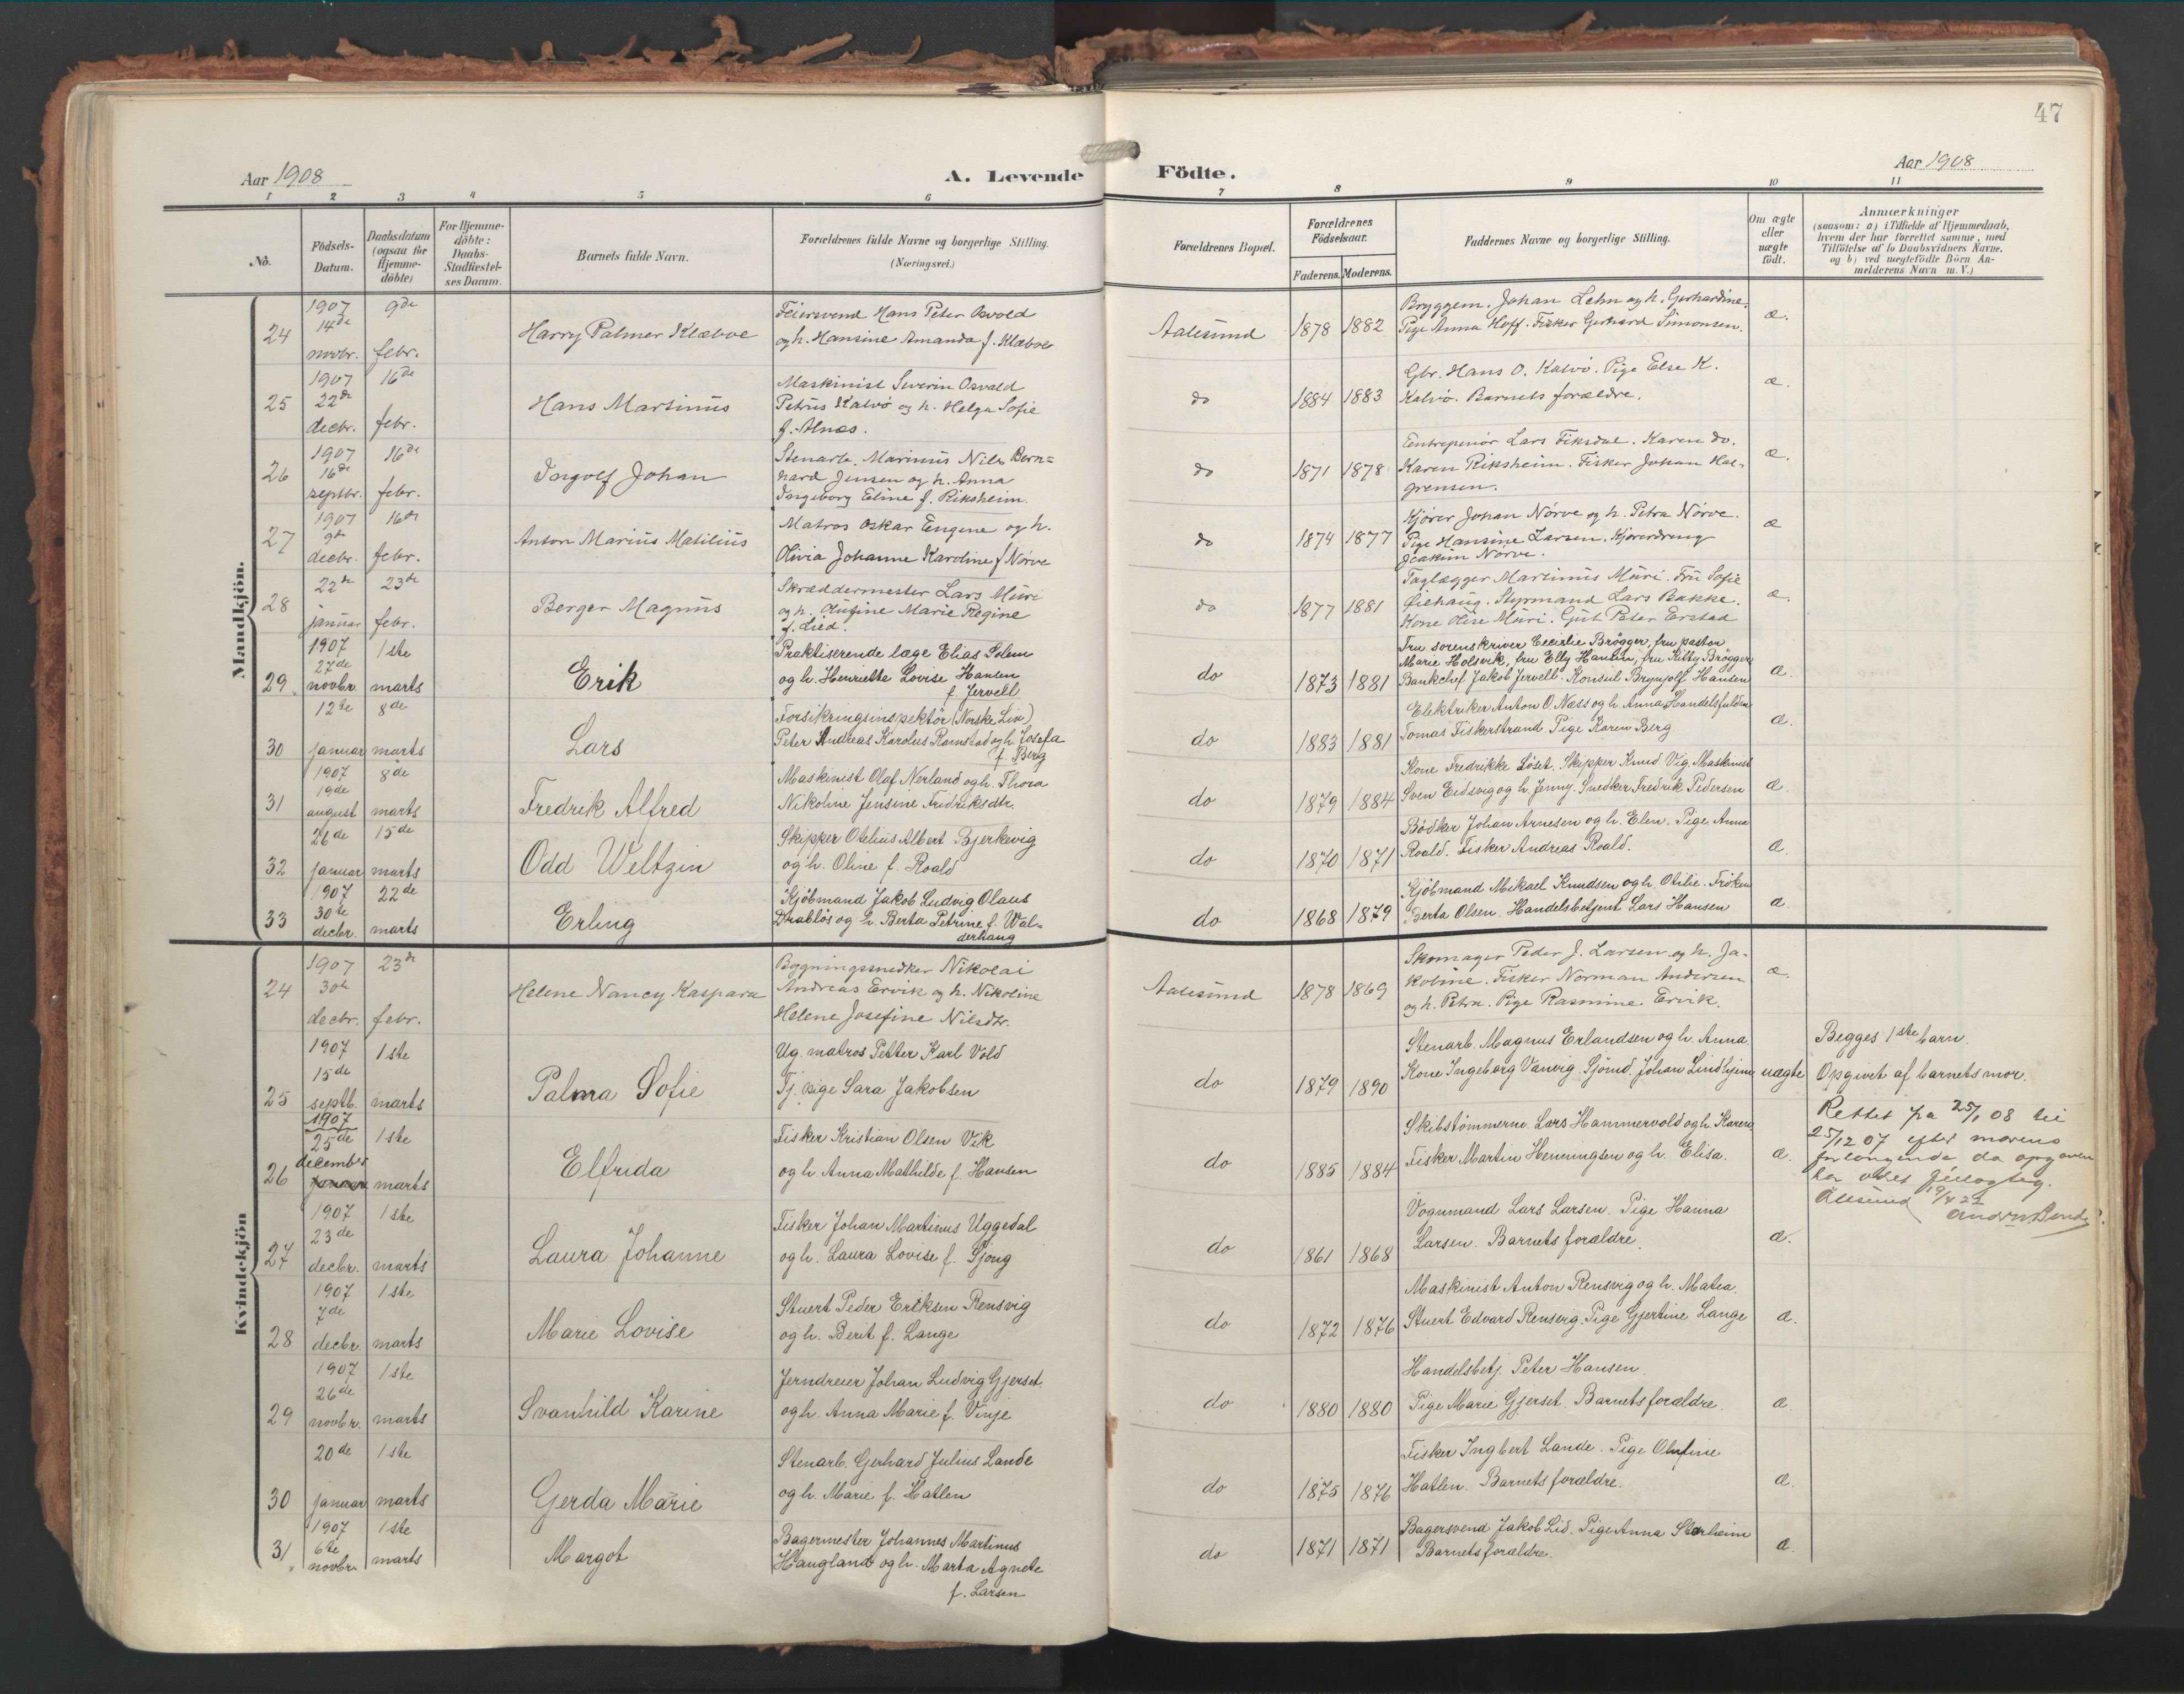 47
Aar 1908
A. Levende
Födte.
Aar 1908
1 2 3 4 5 6 7 8 9 10 11
No.
Födsels-
Datum.
Daabsdatum
(ogsaa for
Hjemme-
döbte)
For Hjemme-
döbte:
Daabs-
Stadfæstel-
ses Datum.
Barnets fulde Navn.
Forældrenes fulde Navne og borgerlige Stilling.
(Næringsvei.)
Forældrenes Bopæl.
Forældrenes
Födselsaar.
Faderens. Moderens.
Faddernes Navne og borgerlige Stilling.
Om ægte
eller
uægte
födt.
Anmærkninger
(saasom: a) i Tilfælde af Hjemmedaab,
hvem der har forrettet samme, med
Tilföielse af to Daabsvidners Navne,
og b) ved uægtefödte Börn An-
melderens Navn m. V.)
Mandkjön.
24
1907
14de
novbr.
9de
febr.
Harry Palmer Klæboe
Feiersvend Hans Peter Osvold
og h. Hansine Amanda f. Klæboe
Aalesund
1878 1882
Bryggem. Johan Lehn og h. Gerhardine.
Pige Anna Hoff. Fisker Gerhard Simonsen.
æ.
25
1907
22de
decbr.
16de
febr.
Hans Martinus
Maskinist Severin Osvald
Petrus Kalvö og h. Helga Sofie
f. Alnæs.
do
1884 1883
Gbr. Hans O. Kalvö. Pige Else K.
Kalvö. Barnets forældre.
æ.
26
1907
16de
septbr.
16de
febr.
Ingolf Johan
Stenarb. Marinus Nils Bern=
hard Jensen og h. Anna
Ingeborg Eline f. Riksheim.
do
1871 1878
Entreprenör Lars Fiksdal. Karen do.
Karen Riksheim. Fisker Johan Hal-
grensen.
æ.
27
1907
9de
decbr.
16de
febr.
Anton Marius Matilius
Matros Oskar Eugene og h.
Olivia Johanne Karoline f Nörve
do
1874 1877
Kjörer Johan Nörve og h. Petra Nörve.
Pige Hansine Larsen. Kjöredreng
Joakim Nörve.
æ
28
22de
januar
23de
febr.
Berger Magnus
Skræddermester Lars Muri
og h. Olufine Marie Regine
f. Lied.
do
1877 1881
Taglægger Martinus Muri. Fru Sofie
Öiehaug. Styrmand Lars Bakke.
Kone Olise Muri. Gut Peter Erstad
æ.
29.
1907
27de
novbr.
1ste
marts
Erik
Praktiserende læge Elias Solem
og h. Henriette Lovise Hansen
f. Jervell
do
1873 1881
Fru sorenskriver Cecilie Brögger, fru pastor
Marie Holsvik, fru Elly Hansen, fru Kitty Brögger
Bankchef Jakob Jervell. Konsul Brynjolf Hansen
æ.
30
12te
januar
8de
marts
Lars
Forsikringsinspektör (Norske Liv)
Peter Andreas Karolus Ramstad og h. Josefa
f. Berg
do
1883 1881
Elektriker Anton O. Næss og h. Anna. Handelsfuldm.
Tomas Fiskerstrand. Pige Karen Berg
æ.
31
1907
19de
august
8de
marts
Fredrik Alfred
Maskinist Olaf Nerland og h. Thora
Nikoline Jensine Fredriksdtr.
do
1879 1884
Kone Fredrikke Löset. Skipper Knud Vig. Maskinist
Sven Eidsvig og h. Jenny. Snedker Fredrik Pedersen
æ.
32
26de
januar
15de
marts
Odd Weltzin
Skipper Otelius Albert Bjerkevig
og h. Oline f. Roald
do
1870 1871
Bödker Johan Arnesen og h. Elen. Pige Anna
Roald. Fisker Andreas Roald.
æ.
33
1907
30te
decbr.
22de
marts
Erling
Kjöbmand Jakob Ludvig Olaus
Drablös og h. Berta Petrine f. Wal-
derhaug
do
1868 1879
Kjöbmand Mikael Knudsen og h. Otilie. Fröken
Berta Olsen. Handelsbetjent Lars Hansen
æ.
Kvindekjön
24
1907
30te
decbr.
23de
febr.
Helene Nancy Kaspara
Bygningssnedker Nikolai
Andreas Ervik og h. Nikoline
Helene Josefine Nilsdtr.
Aalesund
1878 1869
Skomager Peder J. Larsen og h. Ja-
kobine. Fisker Norman Andersen
og h. Petra. Pige Rasmine Ervik.
æ.
25
1907
15de
septb.
1ste
marts
Palma Sofie
Ug. matros Petter Karl Vold
Tj. pige Sara Jakobsen
do
1879 1890
Stenarb. Magnus Erlandsen og h. Anna.
Kone Ingeborg Vanvig. Sjömd. Johan Lindhjem
uægte
Begges 1ste barn.
Opgivet af barnets mor.
26
1907
25de
december
januar
1ste
marts
Elfrida
Fisker Kristian Olsen Vik
og h. Anna Mathilde f. Hansen
do
1885 1884
Skibstömmerm. Lars Hammervold og h. Karen
Fisker Martin Henningsen og h. Elisa.
æ.
Rettet fra 25/1 08 til
25/12 07 efter morens
forlangende da opgaven
har været feilagtig.
Ålesund 19/4 22
27
1907
23de
decbr.
1ste
marts
Laura Johanne
Fisker Johan Martinus Uggedal
og h. Laura Lovise f. Sjong
do
1861 1868
Vognmand Lars Larsen. Pige Hanna
Larsen. Barnets forældre.
æ.
28
1907
7de
decbr.
1ste
marts
Marie Lovise
Stuert Peder Eriksen Rensvig
og h. Berit f. Lange
do
1872 1876
Maskinist Anton Rensvig og h. Matea.
Stuert Edvard Rensvig. Pige Gjertine Lange
æ.
29
1907
26de
novbr.
1ste
marts
Svanhild Karine
Jerndreier Johan Ludvig Gjerset.
og h. Anna Marie f. Vinje
do
1880 1880
Handelsbetj. Peter Hansen.
Pige Marie Gjerset. Barnets forældre.
æ.
30
20de
januar
1ste
marts
Gerda Marie
Stenarb. Gerhard Julius Lande
og h. Marie f. Hatlen
do
1875 1876
Fisker Ingbert Lande. Pige Olufine
Hatlen. Barnets forældre.
æ.
31
1907
6te
novbr.
1ste
marts
Margot
Bagermester Johannes Martinus
Haugland og h. Marta Agnete
f. Larsen
do
1871 1871
Bagersvend Jakob Lid. Pige Anna Storheim
Barnets forældre.
æ.